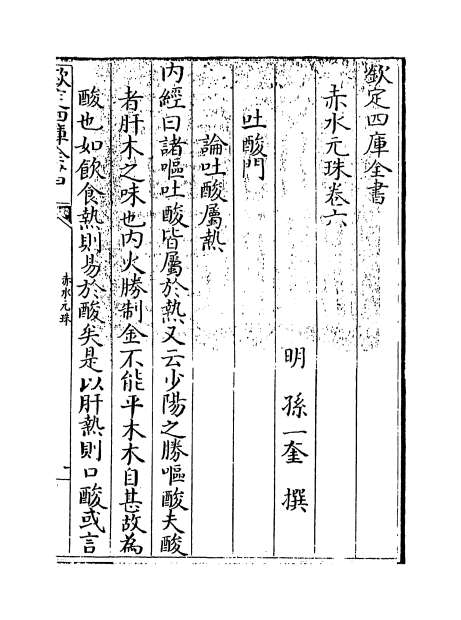 欽定四庫全書
赤水元珠卷六
明 孫一奎 撰
吐酸門
論吐酸屬熱
內經曰諸嘔吐酸皆屬於熱又云少陽之勝嘔酸夫酸
者肝木之味也内火勝制金不能平木木自甚故為
酸也如飲食熱則易於酸矣是以肝熱則口酸或言
欽定四庫全書
赤水元珠
一